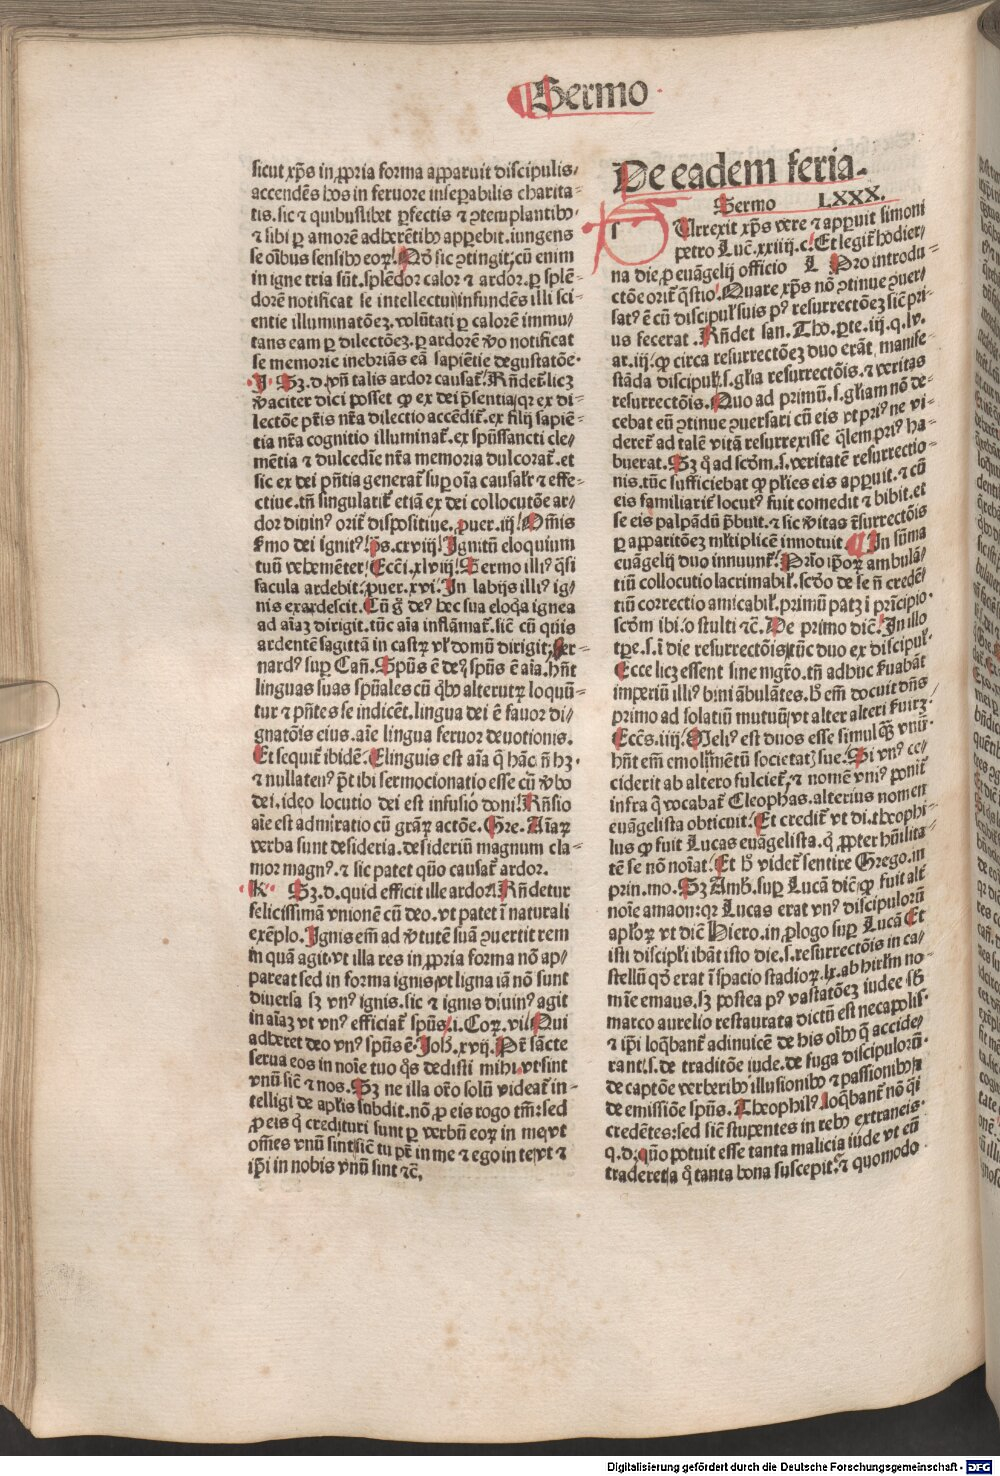 Sermo
sicut xp̄s in ꝓpria forma apparuit discipulis/
accendēs hos in feruore inseꝑabilis charita-
tis. sic ⁊ quibuslibet ꝑfectis ⁊ ꝯtemplantibꝰ
⁊ sibi ꝑ amorē adherētibꝰ apꝑebit. iungens
se oībus sensibꝰ eoꝝ. Nō sic ꝯtingit/ cū enim
in igne tria sūt. splēdor calor ⁊ ardor. ꝑ splē-
dorē notificat se intellectui infundēs illi sci-
entie illuminatōeꝫ. volūtati ꝑ calorē immu/
tans eam ꝑ dilectōeꝫ. ꝑ ardorē ꝟo notificat
se memorie inebriās eā sapiētie degustatōe.
J Sꝫ. d. vn̄ talis ardor causat̄. Rn̄det̄. licꝫ
ꝟaciter dici posset ꝙ ex dei p̄sentia/ qr ex di-
lectōe pr̄is nr̄a dilectio accēdit̄. ex filij sapiē-
tia nr̄a cognitio illuminat̄. ex sp̄ussancti cle/
mētia ⁊ dulcedīe nr̄a memoria dulcorat̄. et
sic ex dei p̄ntia generat̄ suꝑ oīa causalr̄ ⁊ effe-
ctiue. tn̄ singularit̄ etiā ex dei collocutōe ar/
dor diuinꝰ orit̄ dispositiue. ꝓuer. iij. Om̄is
ẜmo dei ignitꝰ. ps. cxviij. Ignitū eloquium
tuū vehemēter. Ecc̄i. xlviij. Sermo illiꝰ q̄si
facula ardebit. ꝓuer. xvi. In labijs illiꝰ ig/
nis exardescit. Cū g̊ deꝰ hec sua eloq̄a ignea
ad aīaꝫ dirigit. tūc aīa inflāmat̄. sic̄ cū quis
ardentē sagittā in castꝝ vl̓ domū dirigit/ Ber-
nardꝰ suꝑ Can̄. Sp̄us ē deꝰ/ sp̄us ē aīa. hn̄t
linguas suas sp̄uales cū q̄bꝰ alterutꝝ loquū-
tur ⁊ p̄ntes se indicēt. lingua dei ē fauor di/
gnatōis eius. aīe lingua feruor deuotionis.
Et sequit̄ ibidē. Elinguis est aīa q̄ hāc n̄ hꝫ.
⁊ nullatenꝰ p̄t ibi sermocinatio esse cū ꝟbo
dei. ideo locutio dei est infusio doni. Rn̄sio
aīe est admiratio cū gr̄aꝝ actōe. Gre. Aīaꝝ
verba sunt desideria. desideriū magnum cla-
mor magnꝰ. ⁊ sic patet quō causat̄ ardor.
K Sꝫ. d. quid efficit ille ardor. Rn̄detur
felicissimā vnionē cū deo. vt patet ī naturali
exēplo. Ignis em̄ ad ꝟtutē suā ꝯuertit rem
in quā agit. vt illa res in ꝓpria forma nō ap/
pareat sed in forma ignis/ vt ligna iā nō sunt
diuersa sꝫ vnꝰ ignis. sic ⁊ ignis diuinꝰ agit
in aīaꝫ vt vnꝰ efficiat̄ sp̄us/ i. Coꝝ. vi. Qui
adheret deo vnꝰ sp̄us ē. Joh̄. xvij. Pr̄ sācte
serua eos in noīe tuo q̊s dedisti mihi. vt sint
vnū sic̄ ⁊ nos. Sꝫ ne illa or̄o solū videat̄ in-
telligi de apl̓is subdit. nō ꝓ eis rogo tm̄: sed
ꝓ eis q̄ credituri sunt ꝑ verbū eoꝝ in me/ vt
om̄es vnū sint/ sic̄ tu pr̄ in me ⁊ ego in te/ vt ⁊
ip̄i in nobis vnū sint ⁊c̄.
De eadem feria.
Sermo LXXX.
sUrrexit xp̄s vere ⁊ apꝑuit simoni
petro Luc̄. xxiiij. c. Et legit̄ hodier/
na die ꝓ euāgelij officio L Pro introdu-
ctōe orit̄ q̄stio. Quare xp̄s nō ꝯtinue ꝯuer-
satꝰ ē cū discipul̓ suis pꝰ resurrectōeꝫ sic̄ pri-
us fecerat. Rn̄det san. Tho. ꝑte. iij. q. lv.
ar. iij. ꝙ circa resurrectōeꝫ duo erāt manife-
stāda discipul̓. s. gl̓ia resurrectōis. ⁊ veritas
resurrectōis. Quo ad primū. s. gl̓iam nō de-
cebat eū ꝯtinue ꝯuersari cū eis vt priꝰ ne vi-
deret̄ ad talē vitā resurrexisse q̄lem priꝰ ha-
buerat. Sꝫ q̊ ad scd̓m. s. veritatē resurrectio-
nis. tūc sufficiebat ꝙ pl̓ies eis apꝑuit. ⁊ cū
eis familiarit̄ locutꝰ fuit comedit ⁊ bibit. et
se eis palpādū p̄buit. ⁊ sic ꝟitas r̄surrectōis
ꝑ apparitōeꝫ ml̓tiplicē innotuit. In sūma
euāgelij duo innuunt̄. Prīo ip̄oꝝ ambulā/
tiū collocutio lacrimabil̓. scd̓o de se n̄ credē/
tiū correctio amicabil̓. primū patꝫ ī prīcipio.
scd̓m ibi. o stulti ⁊c̄. De primo dic̄. In illo
tꝑe. s. ī die resurrectōis/ tūc duo ex discipul̓.
Ecce licꝫ essent sine mgr̄o. tn̄ adhuc ẜuabāt
imperiū illiꝰ bini ābulātes. hꝰ em̄ docuit dn̄s
primo ad solatiū mutuū/ vt alter alteri ẜuiꝝ.
Ecc̄s. iiij. Meliꝰ est duos esse simul qꝫ̄ vnū.
hn̄t em̄ emolumētū societatꝭ sue. Si vnꝰ ce/
ciderit ab altero fulciet̄/ ⁊ nomē vniꝰ ponit̄
infra q̄ vocabat̄ Cleophas. alterius nomen
euāgelista obticuit. Et credit̄ vt di. theophi-
lus ꝙ fuit Lucas euāgelista. q̊ ꝓpter hūilita-
tē se nō noīat. Et hꝰ videt̄ sentire Grego. in
prin. mo. Sꝫ Amb̄. suꝑ Lucā dic̄ ꝙ fuit alt̄
noīe amaon: qr Lucas erat vnꝰ discipulorū
apl̓oꝝ vt dic̄ Hiero. in ꝓlogo suꝑ Lucā Et
isti discipl̓i ibāt isto die. s. resurrectōis in ca/
stellū qd̓ erat ī spacio stadioꝝ. lx. ab hirl̓m no-
mīe emaus. sꝫ postea pꝰ vastatōeꝫ iudee sb̄
marco aurelio restaurata dictū est necapolis.
⁊ ip̄i loq̄bant̄ adinuicē de his oībꝰ q̄ accide/
rant. s. de traditōe iude. de fuga discipulorū.
de captōe verberibꝰ illusionibꝰ ⁊ passionibꝰ/ ⁊
de emissiōe sp̄us. Theophilꝰ. loq̄bant̄ nō q̄i
credētes: sed sic̄ stupentes in rebꝰ extraneis.
q. d. quō potuit esse tanta malicia iude vt eū
traderet/ a q̊ tanta bona suscepit. ⁊ quomodo
Digitalisierung gefördert durch die Deutsche Forschungsgemeinschaft - DFG